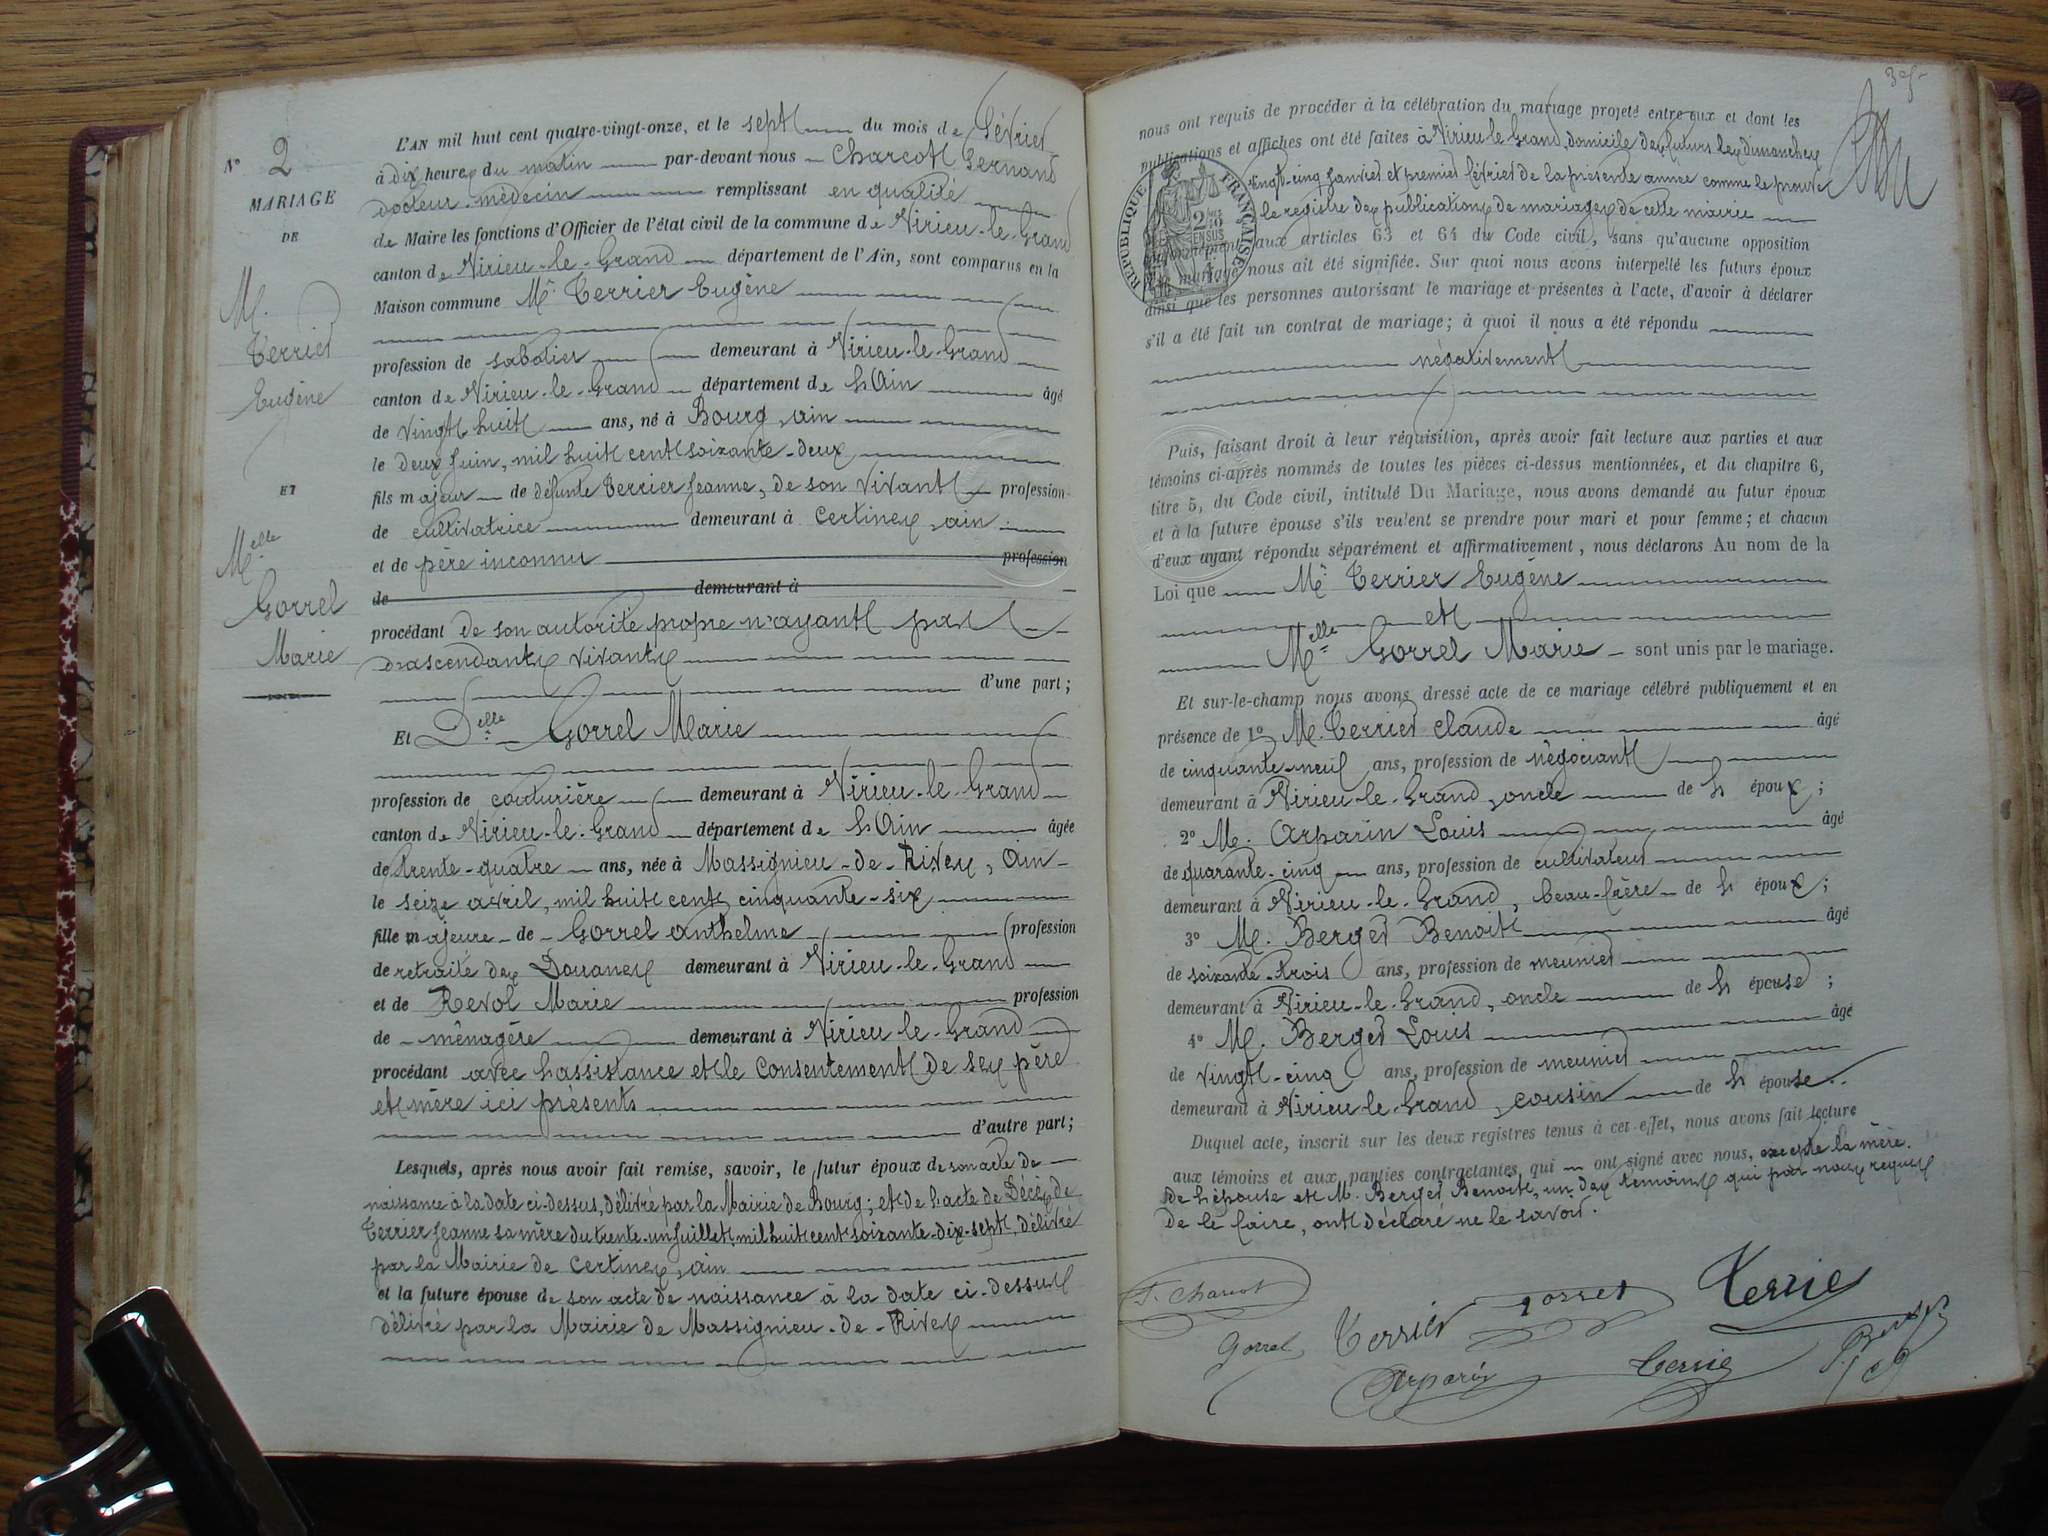 N° 2
MARIAGE
DE
M.
Terrier
Eugène
ET
Melle
Gorrel
Marie
L'AN mil huit cent quatre-vingt-onze, et le sept du mois de février
à dix heures du matin par-devant nous Charcot Fernand
docteur-médecin remplissant en qualité
de Maire les fonctions d'Officier de l'état civil de la commune de Virieu-le-Grand
canton de Virieu-le-Grand département de l'Ain, sont comparus en la
Maison commune Mr Terrier Eugène
profession de sabotier demeurant à Virieu-le-Grand
canton de Virieu-le-Grand département de l'Ain âgé
de vingt huit ans, né à Bourg, ain
le deux juin, mil huit cent soixante-deux
fils majeur de défunte Terrier Jeanne, de son vivant profession
de cultivatrice demeurant à Certines, ain
et de père inconnu profession
de demeurant à
procédant de son autorité propre n'ayant pas
d'ascendants vivants
d'une part;
Et Delle Gorrel Marie
profession de couturière demeurant à Virieu-le-Grand
canton de Virieu-le-Grand département de l'Ain âgée
de trente-quatre ans, née à Massignieu-de-Rives, Ain
le seize avril, mil huit cent cinquante-six
fille majeure de Gorrel Anthelme profession
de retraité des Douanes demeurant à Virieu-le-Grand
et de Revol Marie profession
de ménagère demeurant à Virieu le-Grand
procédant avec l'assistance et le consentement de ses père
et mère ici présents
d'autre part;
Lesquels, après nous avoir fait remise, savoir, le futur époux de son acte de
naissance à la date ci-dessus, délivré par la Mairie de Bourg; et de l'acte de Décès de
Terrier Jeanne sa mère du trente-un juillet mil huit cent soixante-dix-sept, délivré
par la Mairie de Certines, ain
et la future épouse de son acte de naissance à la date ci-dessus
délivré par la Mairie de Massignieu-de-Rives
nous ont requis de procéder à la célébration du mariage projeté entre eux et dont les
publications et affiches ont été faites à Virieu-le-Grand, domicile des futurs les dimanches
vingt-cinq janvier et premier février de la présente année comme le prouve
le registre des publications de mariages de cette mairie
RÉPUBLIQUE FRANÇAISE
aux articles 63 et 64 du Code civil, sans qu'aucune opposition
mariage nous ait été signifiée. Sur quoi nous avons interpellé les futurs époux
ainsi que les personnes autorisant le mariage et présentes à l'acte, d'avoir à déclarer
s'il a été fait un contrat de mariage; à quoi il nous a été répondu
négativement
Puis, faisant droit à leur réquisition, après avoir fait lecture aux parties et aux
témoins ci-après nommés de toutes les pièces ci-dessus mentionnées, et du chapitre 6,
titre 5, du Code civil, intitulé Du Mariage, nous avons demandé au futur époux
et à la future épouse s'ils veulent se prendre pour mari et pour femme; et chacun
d'eux ayant répondu séparément et affirmativement, nous déclarons Au nom de la
Loi que Mr Terrier Eugène
et
Melle Gorrel Marie sont unis par le mariage.
Et sur-le-champ nous avons dressé acte de ce mariage célébré publiquement et en
présence de 1° M. Terrier Claude âgé
de cinquante-neuf ans, profession de négociant
demeurant à Virieu-le-Grand, oncle de l'époux;
2° M. Arparin Louis âgé
de quarante-cinq ans, profession de cultivateur
demeurant à Virieu-le-Grand, beau-frère de l'époux;
3° M. Berger Benoit âgé
de soixante-trois ans, profession de meunier
demeurant à Virieu-le-Grand, oncle de l'épouse;
4° M. Berger Louis âgé
de vingt-cinq ans, profession de meunier
demeurant à Virieu-le-Grand, cousin de l'épouse.
Duquel acte, inscrit sur les deux registres tenus à cet effet, nous avons fait lecture
aux témoins et aux parties contractantes, qui ont signé avec nous, excepté la mère
de l'épouse et M. Berger Benoit, un des témoins qui par nous requis
de le faire, ont déclaré ne le savoir.
F. Charcot
Gorrel Terrier gorrel Terrie
Arparin Terrie